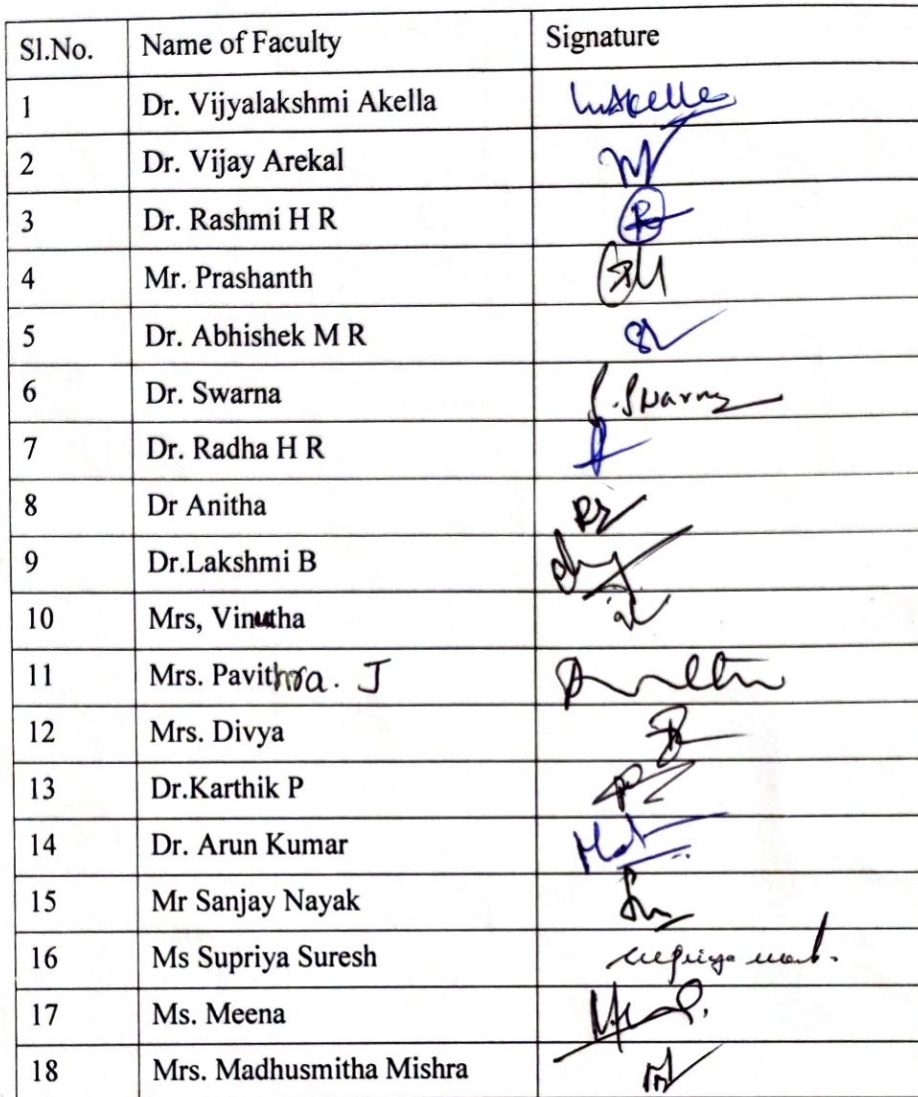 Sl.No. Name of Faculty Signature
1 Dr. Vijyalakshmi Akella
2 Dr. Vijay Arekal
3 Dr. Rashmi H R
4 Mr. Prashanth
5 Dr. Abhishek M R
6 Dr. Swarna S. Swarna
7 Dr. Radha H R
8 Dr Anitha
9 Dr.Lakshmi B
10 Mrs, Vinutha
11 Mrs. Pavithra. J
12 Mrs. Divya
13 Dr.Karthik P
14 Dr. Arun Kumar
15 Mr Sanjay Nayak
16 Ms Supriya Suresh
17 Ms. Meena
18 Mrs. Madhusmitha Mishra